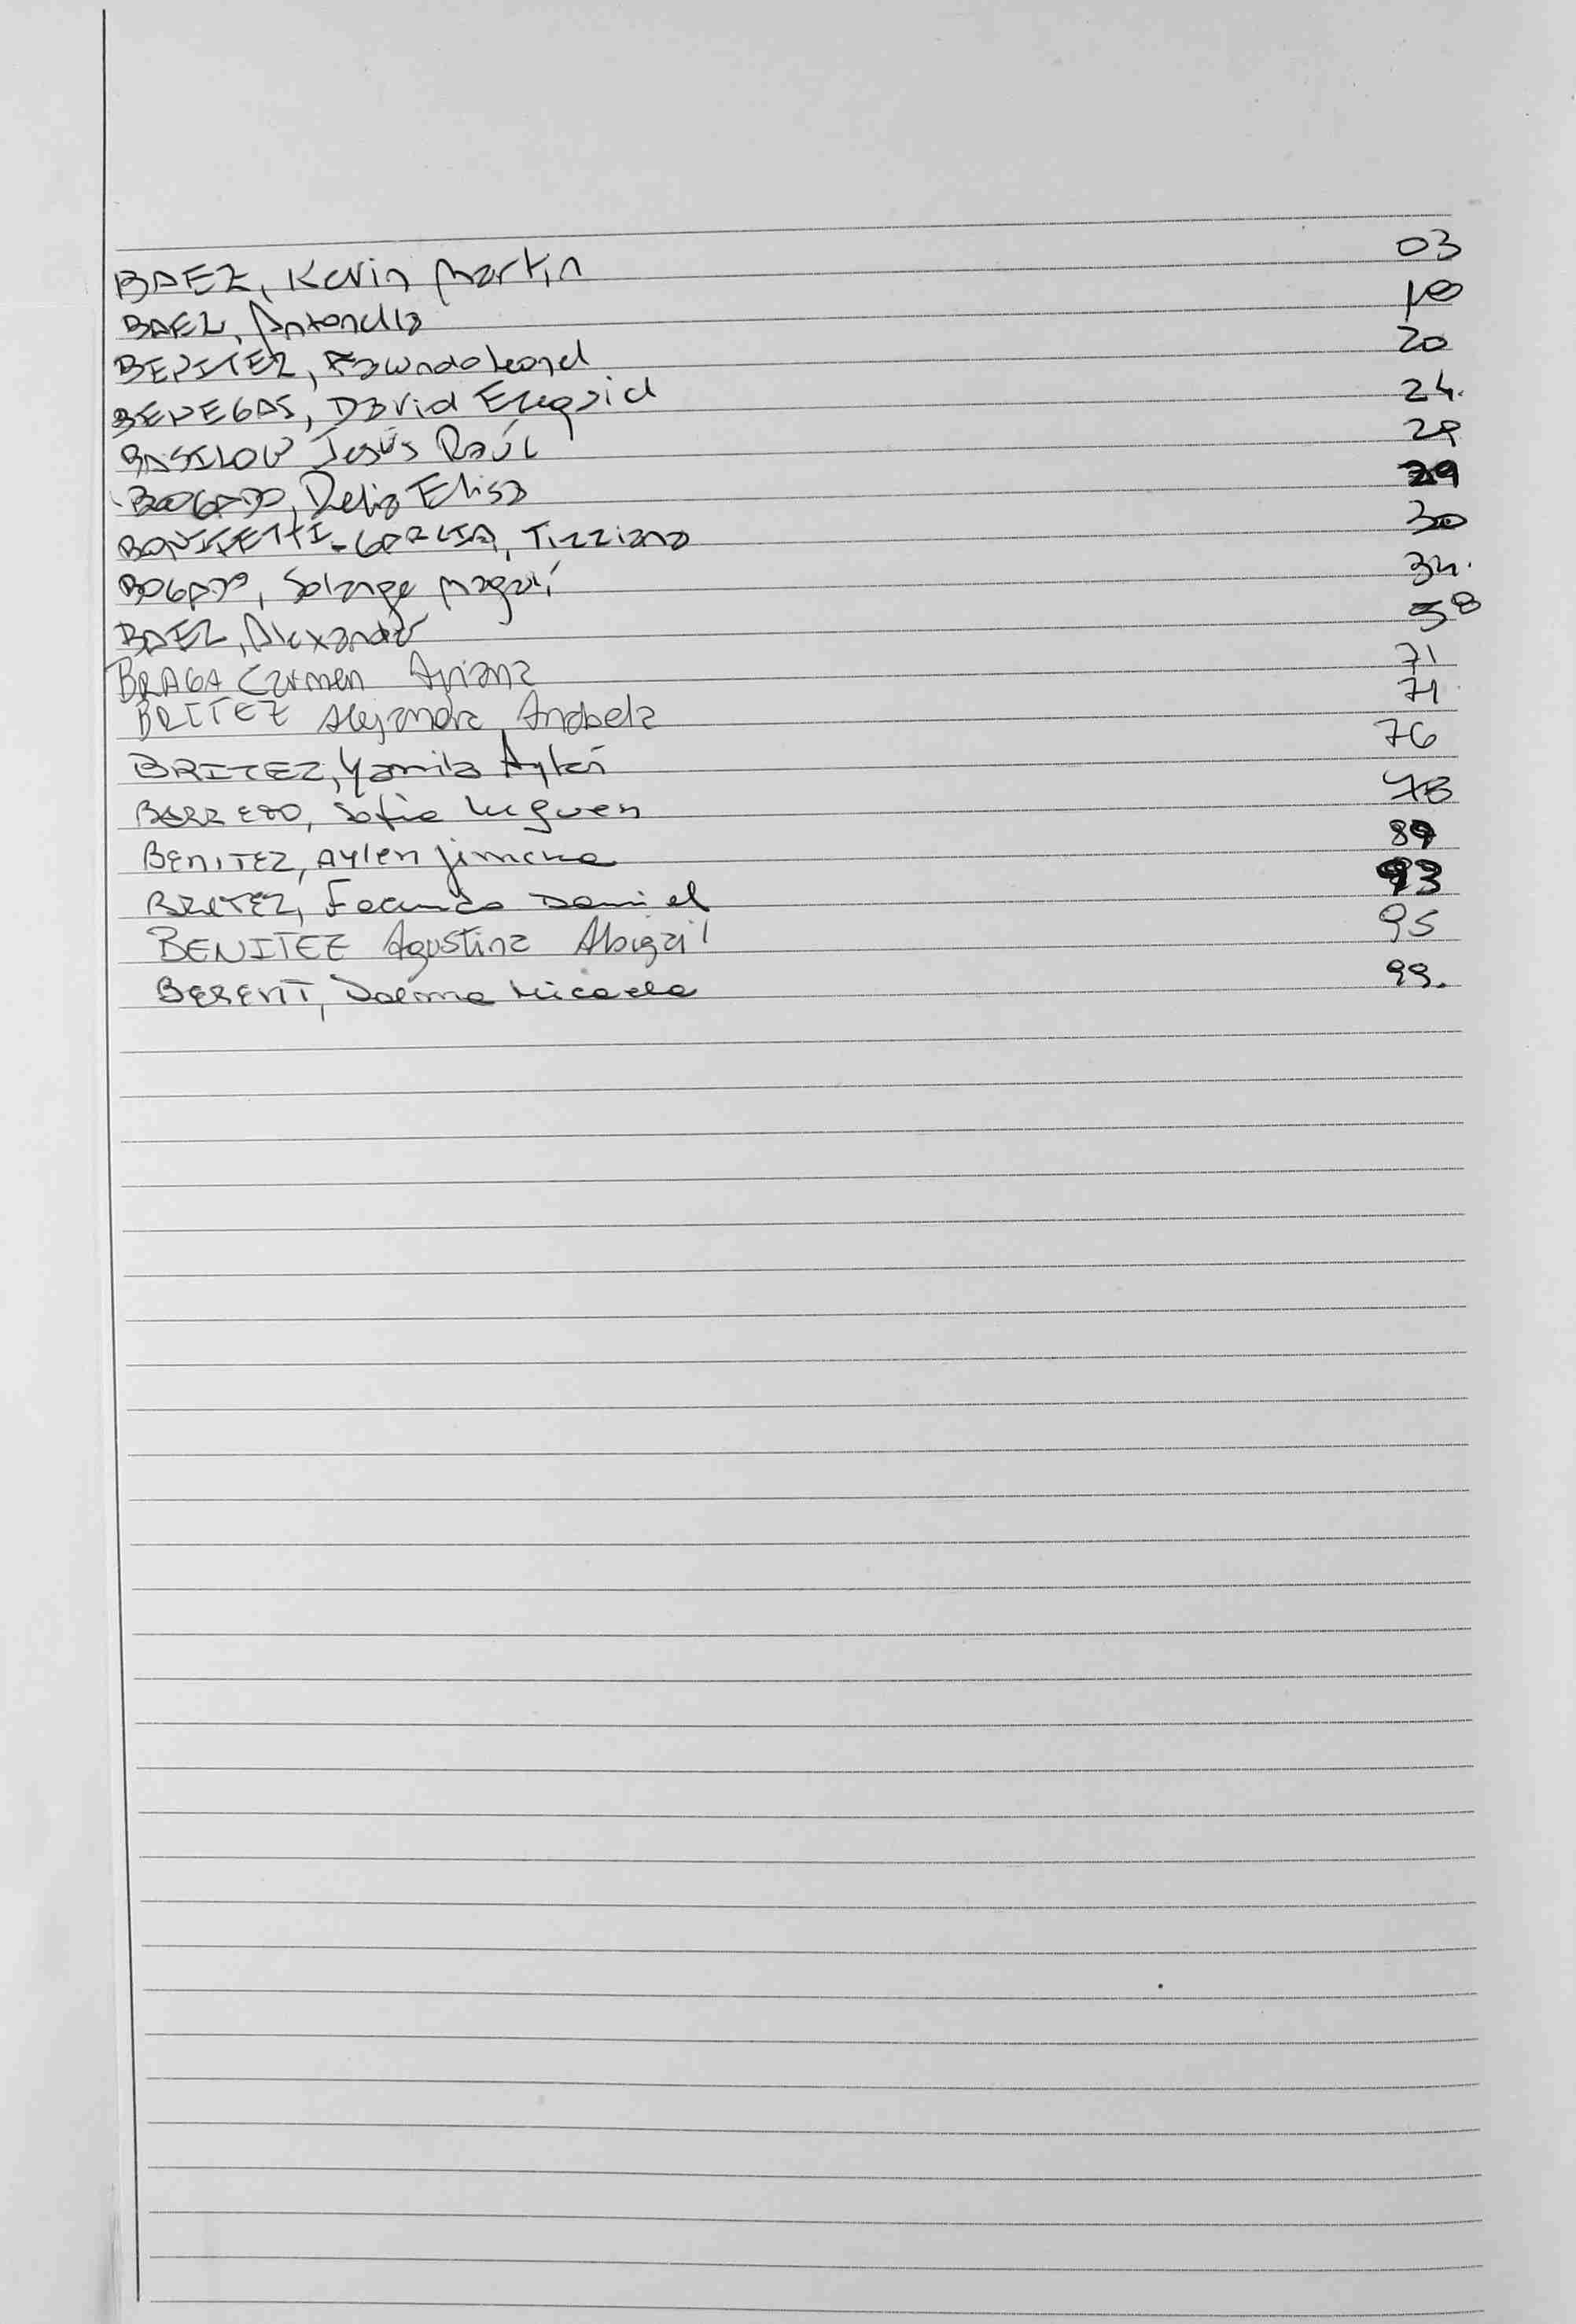 BAEZ, Kevin Martin 03
BAEZ, Antonella 18
BENITEZ, Facundo Leonel 20
BENEGAS, David Ezequiel 24.
BASILOW Jesús Raúl 28
BOGADO, Delia Elisa 29
BONIFETTI-GARCIA, Tizziano 30
BOGADO, Solange Magalí 34.
BAEZ, Alexander 58
BRAGA Carmen Ariana 71
BRITEZ Alejandra Anabela 71
BRITEZ, Yamila Aylén 76
BARRETO, Sofia 78
BENITEZ, Aylen jimena 89
BRITEZ, Facundo Daniel 93
BENITEZ Agustina Abigail 95
BERENT, Daiana Micaela 99.